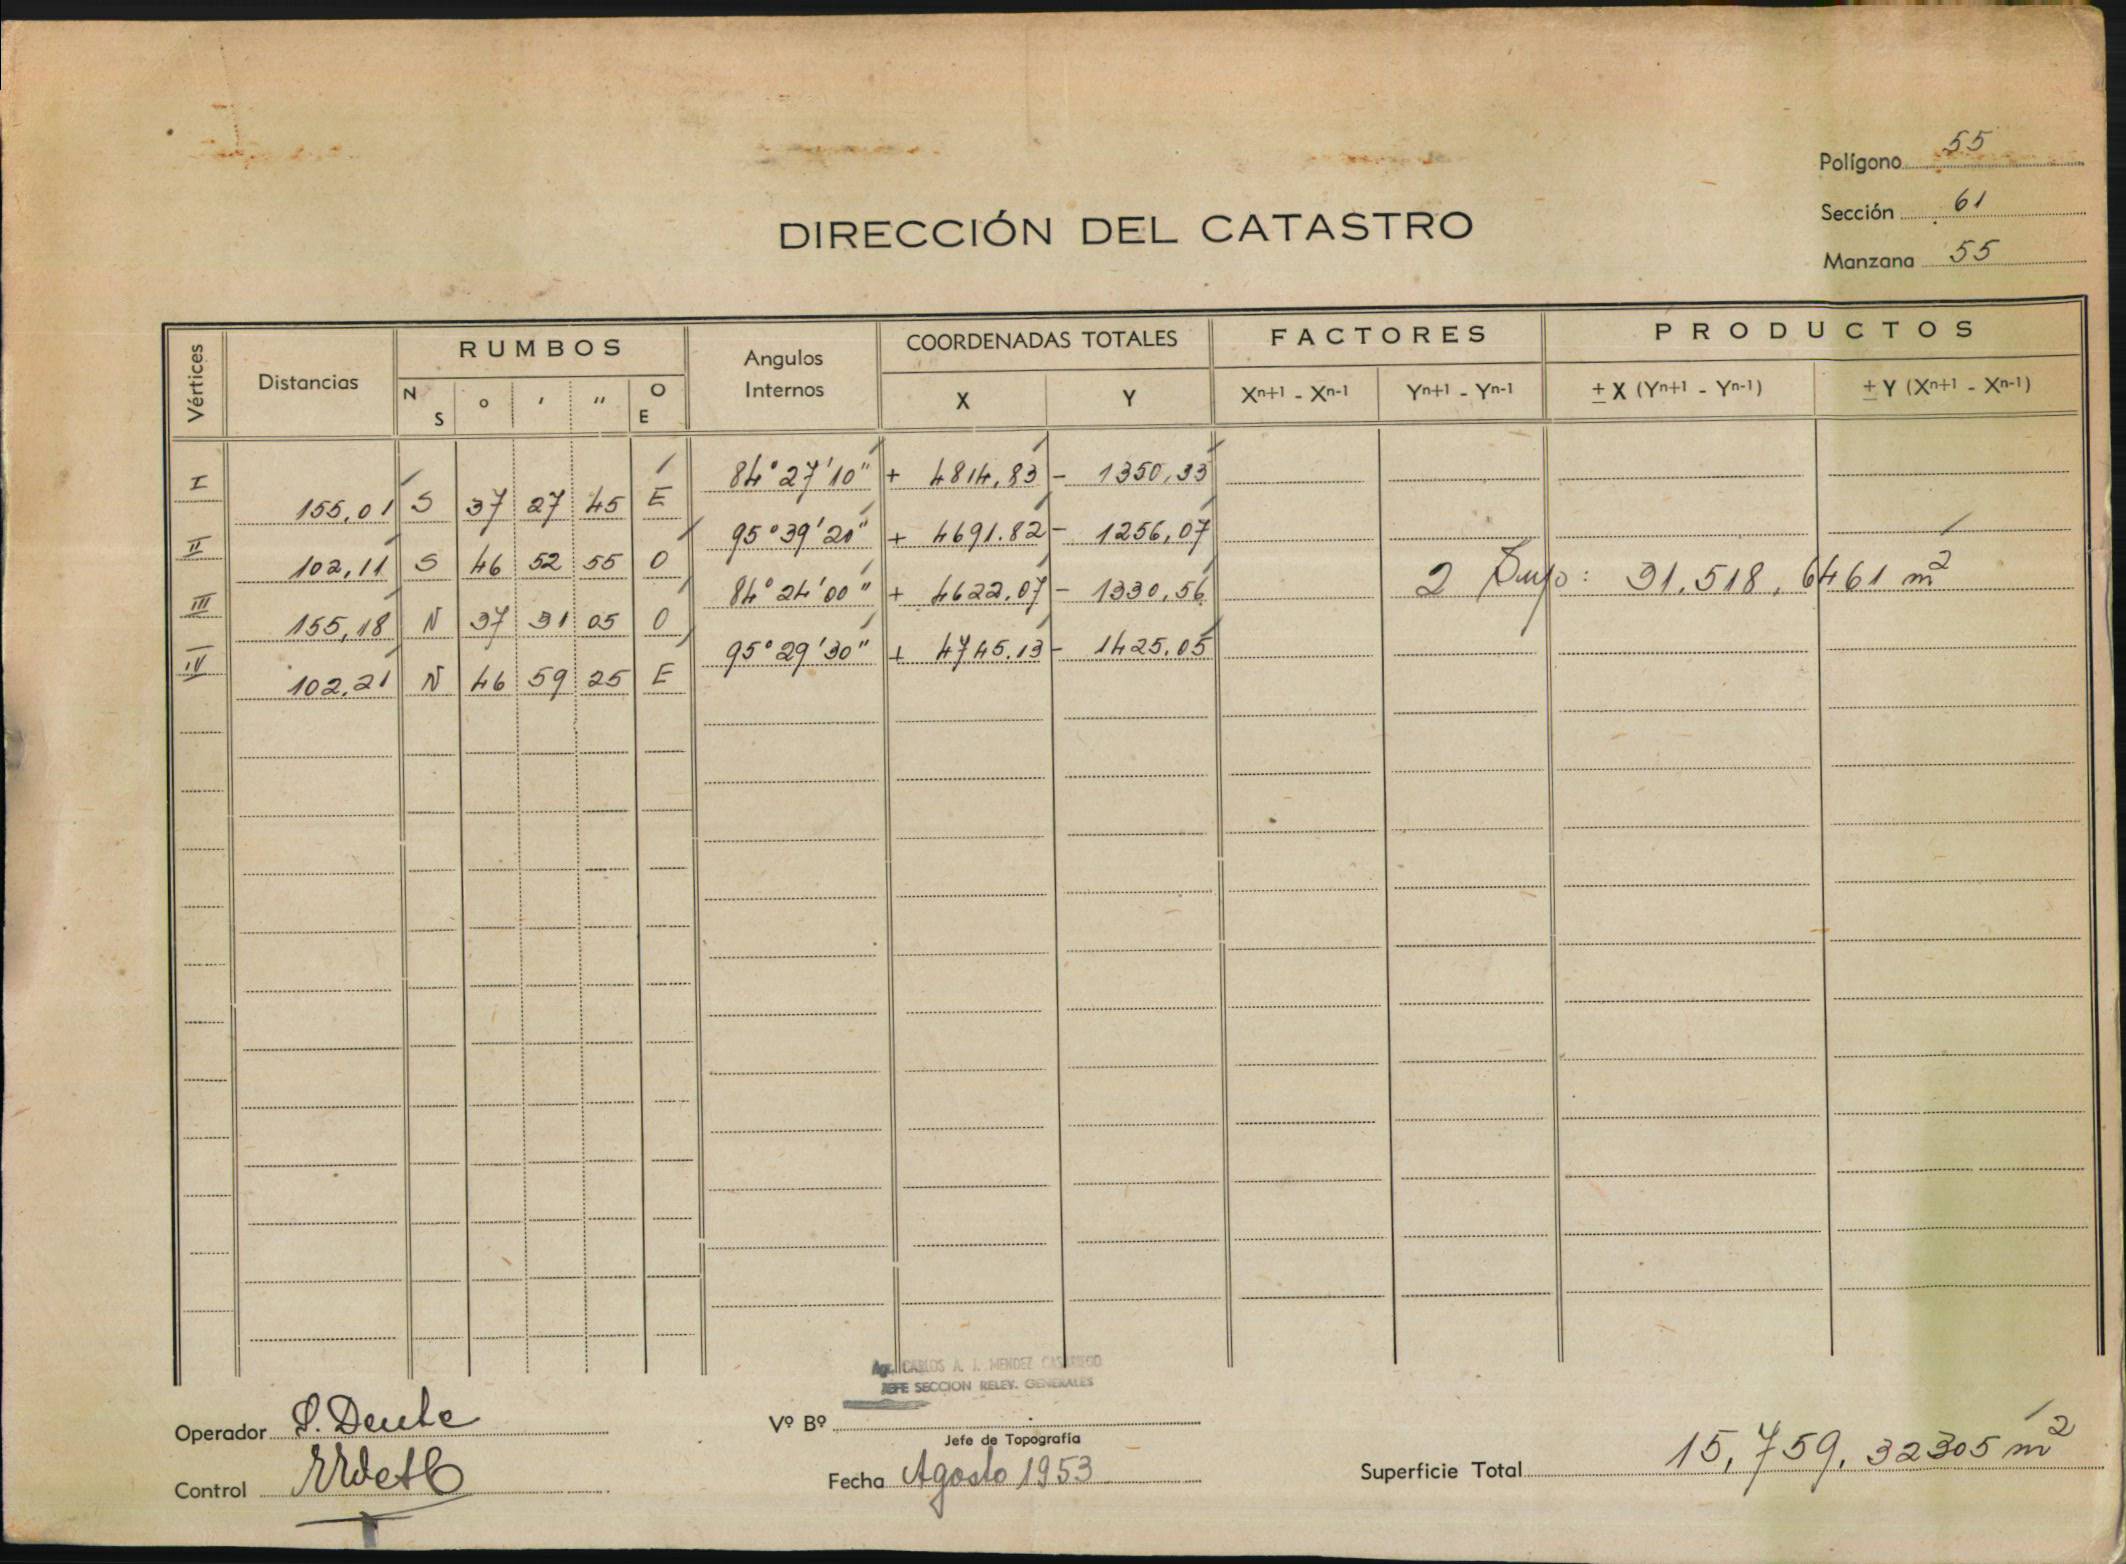 Polígono 55
Sección 61
Manzana 55
DIRECCIÓN DEL CATASTRO
Vértices Distancias RUMBOS Angulos Internos COORDENADAS TOTALES FACTORES PRODUCTOS
N S ° ' " O E X Y Xn+1 - Xn-1 Yn+1 - Yn-1 ± X (Yn+1 - Yn-1) ± Y (Xn+1 - Xn-1)
I 84°27'10" + 4814,83 - 1350,33
155,01 S 37 27 45 E
II 95°39'20" + 4691.82 - 1256,07
102,11 S 46 52 55 O
III 84°24'00" + 4622,07 - 1330,56
2 Sup: 31.518,6461 m²
155,18 N 37 31 05 O
IV 95°29'30" + 4745.13 - 1425,05
102,21 N 46 59 25 E
Agr. CARLOS A. J. MENDEZ CASARIEGO
JEFE SECCION RELEV. GENERALES
Operador
Vº Bº
Jefe de Topografía
Control
Fecha Agosto 1953
Superficie Total 15,759.32305 m²